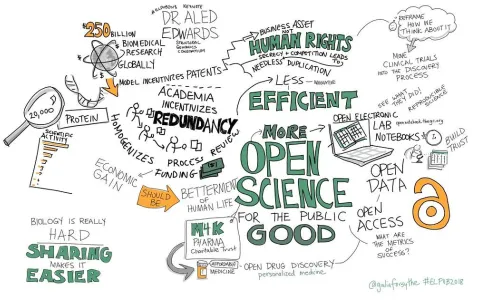 #ELPUB2018 KEYNOTE
DR ALED
EDWARDS
STRUCTURAL
GENOMICS
CONSORTIUM
$250
BILLION
BIOMEDICAL
RESEARCH
GLOBALLY
MODEL INCENTIVIZES PATENTS
BUSINESS ASSET
NOT
HUMAN RIGHTS
SECRECY + COMPETITION LEADS
TO
NEEDLESS DUPLICATION
REFRAME
HOW WE
THINK ABOUT IT
MOVE
CLINICAL TRIALS
INTO THE DISCOVERY
PROCESS
20,000
PROTEIN
SCIENTIFIC
ACTIVITY
ACADEMIA
INCENTIVIZES
REDUNDANCY
HOMOGENIZES
PROCESS
REVIEW
FUNDING
LESS
EFFICIENT
SEE WHAT THEY DID!
REPRODUCIBLE
SCIENCE
OPEN ELECTRONIC
LAB
NOTEBOOKS
openlabnotebooks.org
BUILD
TRUST
MORE
OPEN
SCIENCE
FOR THE PUBLIC
GOOD
OPEN
DATA
OPEN
ACCESS
WHAT ARE
THE METRICS
OF SUCCESS?
ECONOMIC
GAIN
SHOULD
BE
BETTERMENT
OF HUMAN LIFE
M4K
PHARMA
Charitable Trust
AFFORDABLE
MEDICINE
OPEN DRUG DISCOVERY
personalized medicine
BIOLOGY IS REALLY
HARD
SHARING
MAKES IT
EASIER
@giuliaforsythe #ELPUB2018